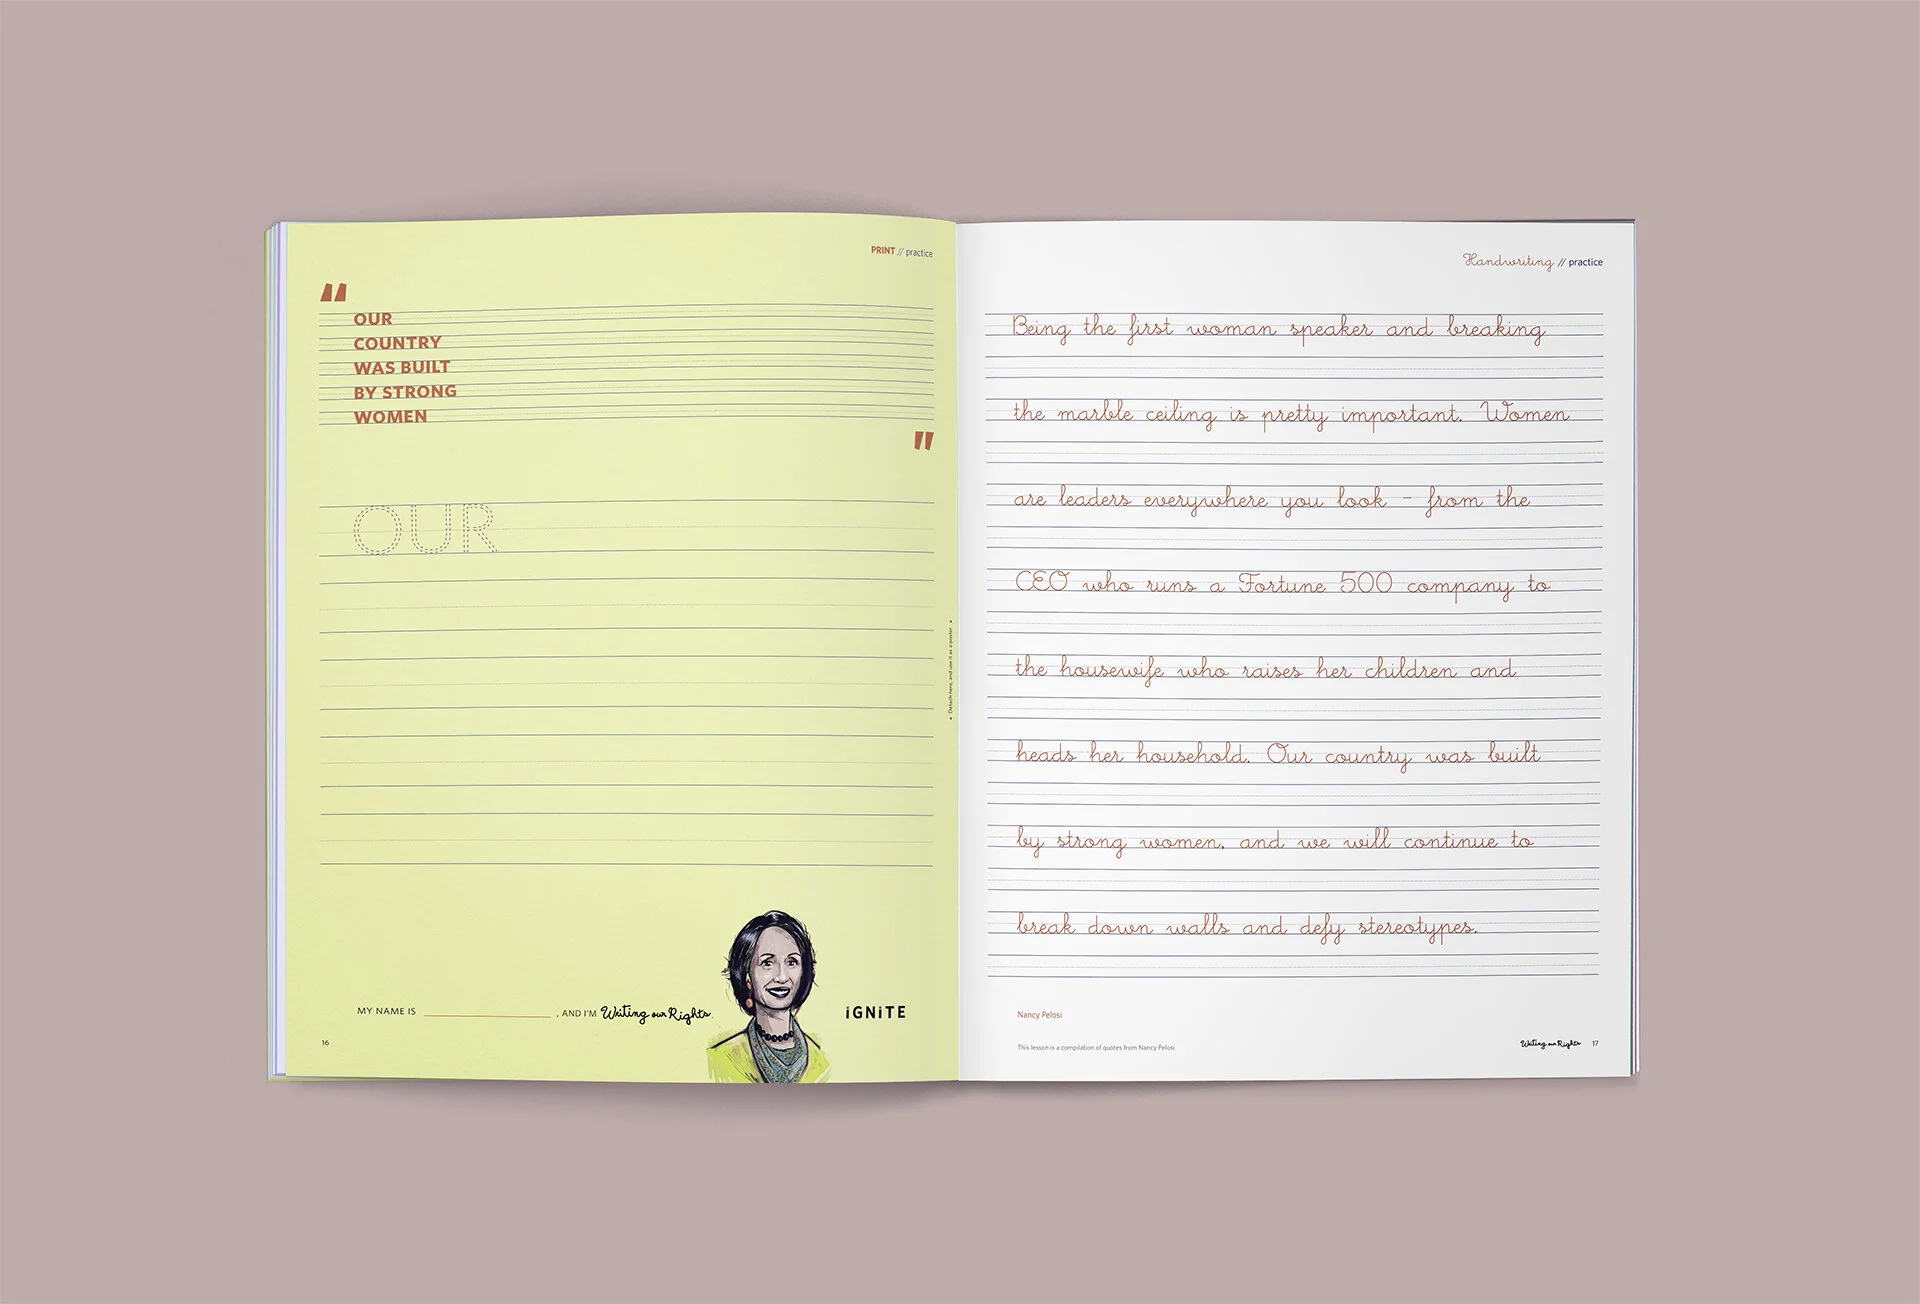 PRINT // practice
"
OUR
COUNTRY
WAS BUILT
BY STRONG
WOMEN
"
OUR
• Detach here, and use it as a poster •
MY NAME IS ____________, AND I'M Writing our Rights.
iGNiTE
16
Handwriting // practice
Being the first woman speaker and breaking
the marble ceiling is pretty important. Women
are leaders everywhere you look – from the
CEO who runs a Fortune 500 company to
the housewife who raises her children and
heads her household. Our country was built
by strong women, and we will continue to
break down walls and defy stereotypes.
Nancy Pelosi
This lesson is a compilation of quotes from Nancy Pelosi
Writing our Rights 17